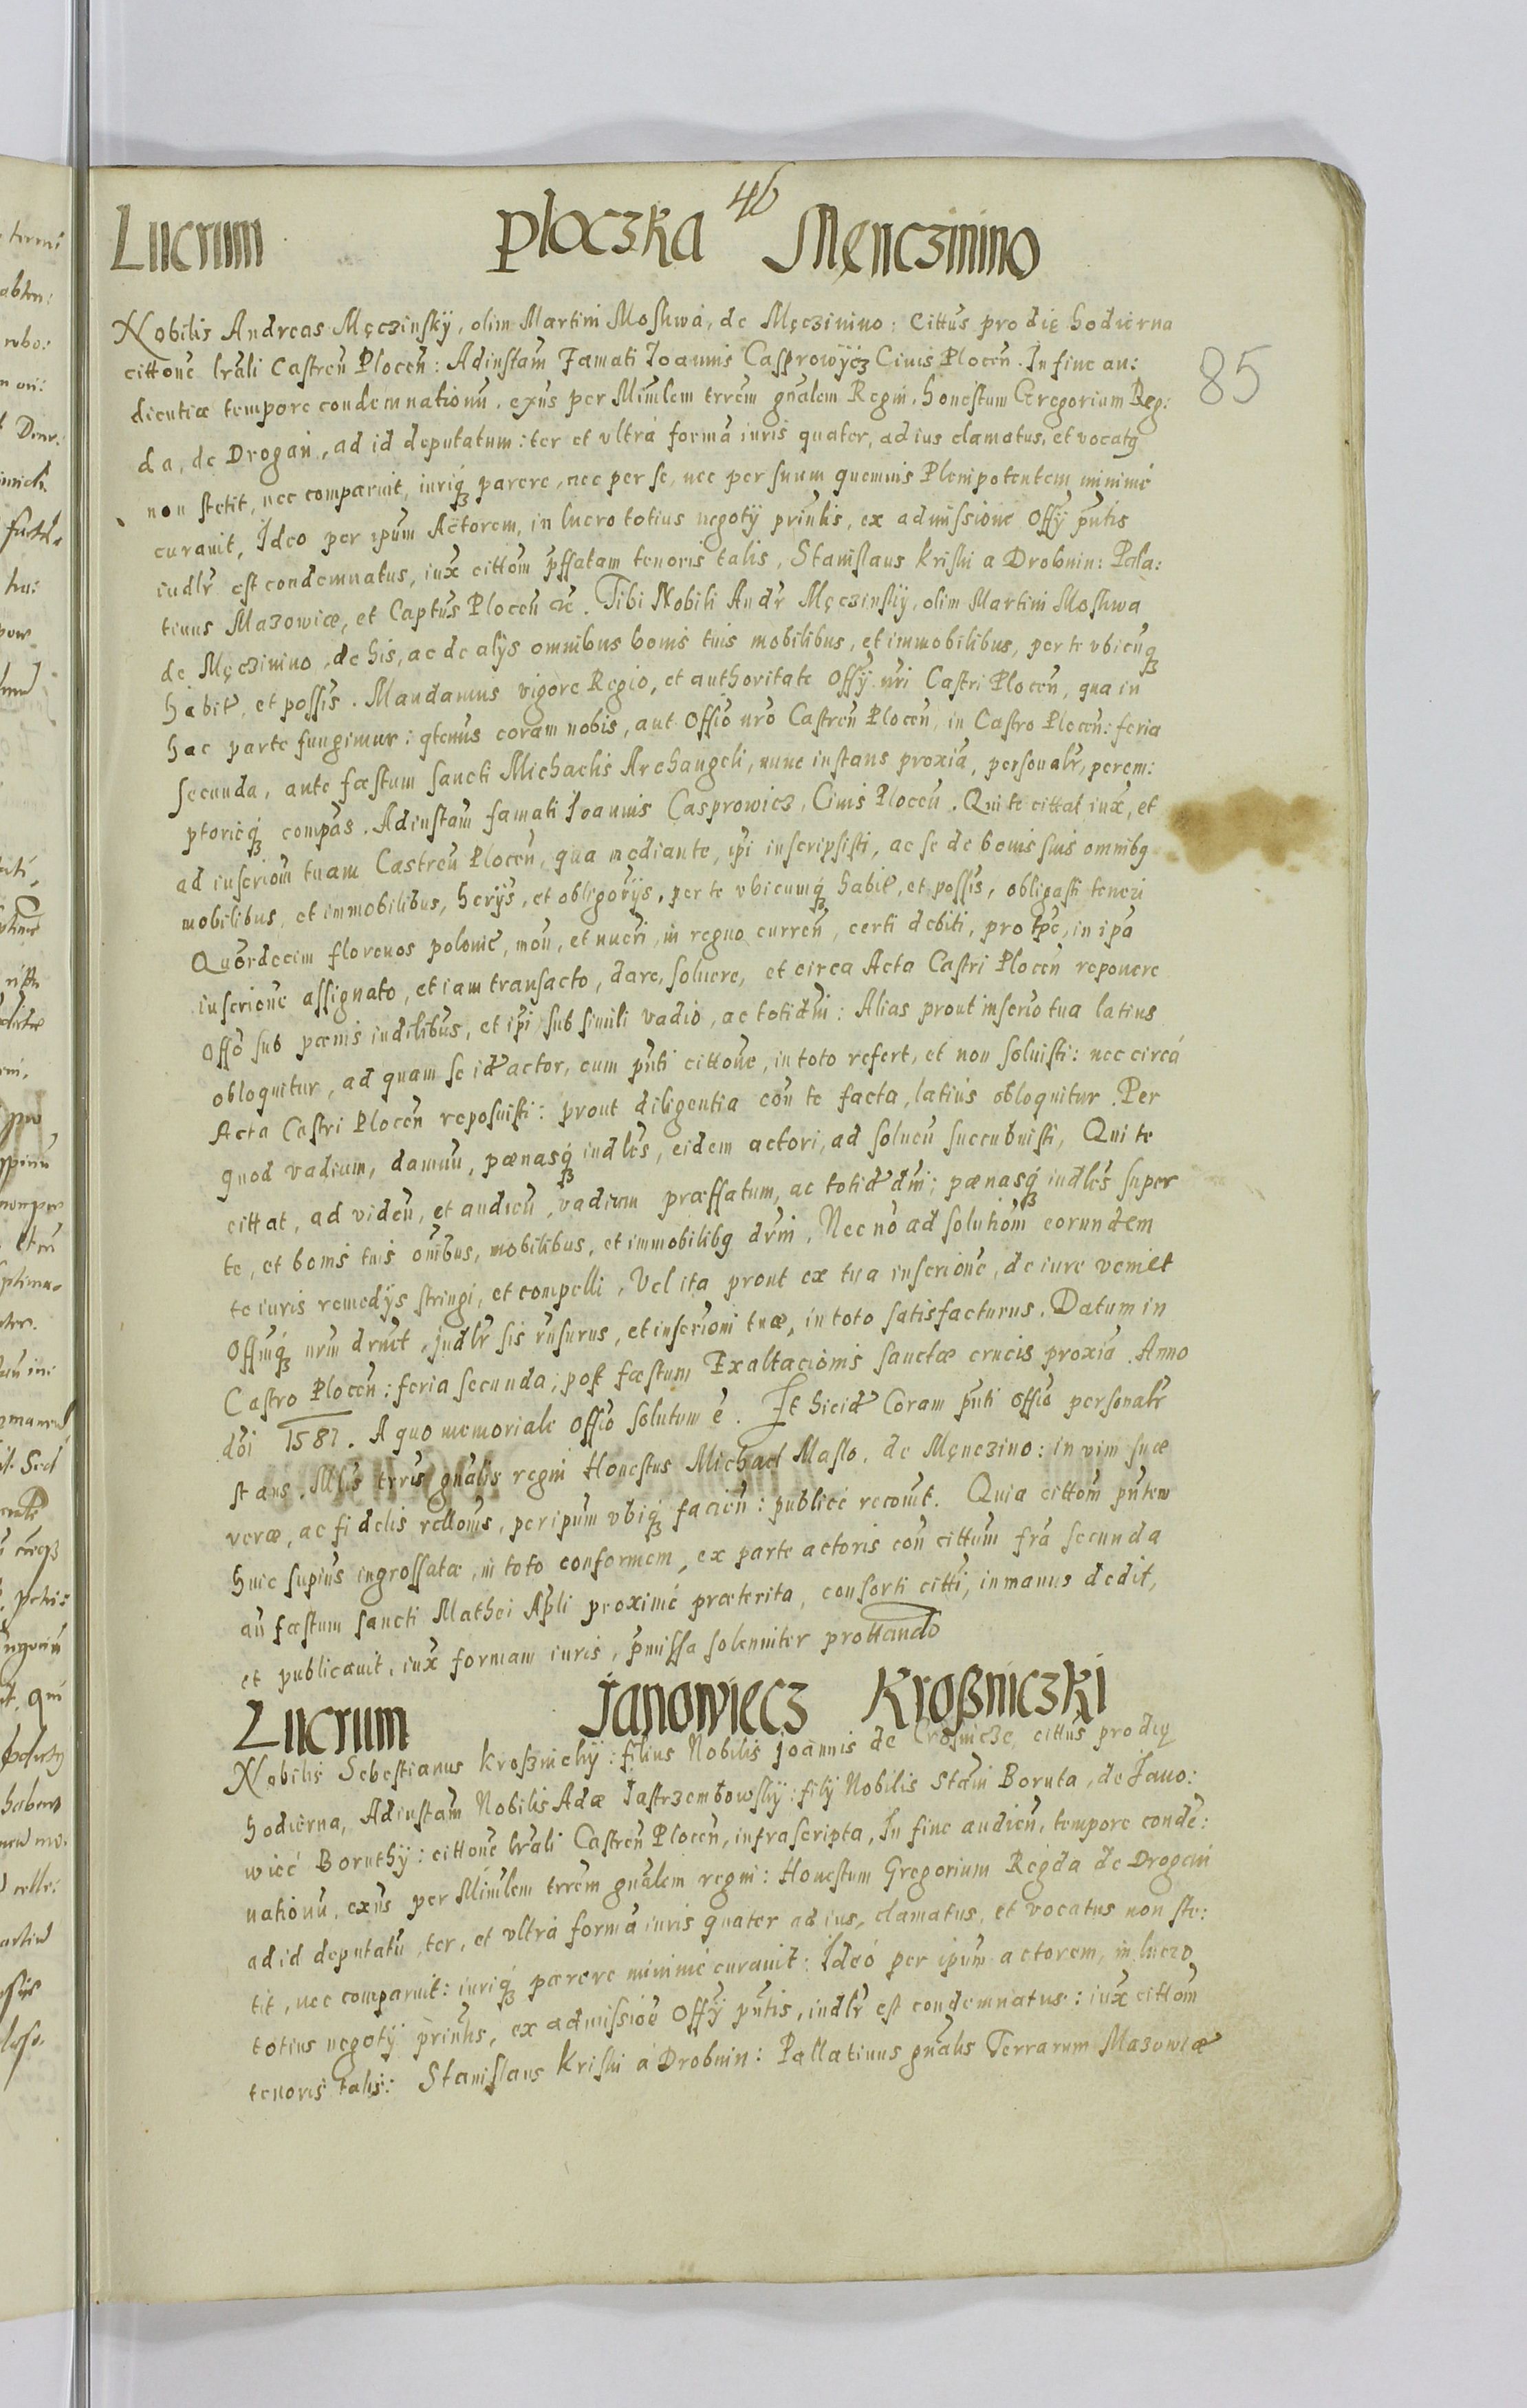 46
Lucrum Ploczka Menczinino
85
Nobilis Andreas Męczinskÿ, olim Martini Moskwa, de Męczinino: Cittus pro die hodierna
cittone lrali Castren Plocen: Ad instam Famati Ioannis Casprowÿcz Ciuis Plocen. In fine au:
dientiæ tempore condemnationu. exns per Mimlem trrem gnalem Regni, honestum Gregorium Reg:
da, de Drogan, ad id deputatum: ter et vltrá formá iuris quater, ad ius clamatus, et vocatg
non stetit, nec comparuit, iuriq parere, nec per se, nec per suum quemuis Plenipotentem minimé
curauit, Ideo per ipum Actorem, in lucro totius negotÿ prinlis, ex admissione Offÿ pntis
iudlr est condemnatus, iux cittom pffatam tenoris talis, Stanislaus Kriski a Drobnin: Pala:
tinus Mazowiæ, et Captus Plocen etc. Tibi Nobili Andr Męczinskÿ, olim Martini Moskwa
de Męczinino, de his, ac de alÿs omnibus bonis tuis mobilibus, et immobilibus, per te vbicuq
habit, et possis. Mandamus vigore Regio, et authoritate Offÿ nri Castri Plocen, qua in
hac parte fungimur: qtenus coram nobis, aut Offio nro Castren Plocen, in Castro Plocen: feria
secunda, ante fæstum sancti Michaelis Archangeli, nunc instans proxia, personalr, perem:
ptorieq compas. Ad instam famati Ioannis Casprowicz, Ciuis Plocen. Qui te cittat iux, et
ad inscriom tuam Castren Plocen, qua mediante, ipi inscripsisti, ac se de bonis suis omnibg
mobilibus, et immobilibus, herÿs, et obligorÿs, per te vbicumq habit, et possis, obligasti teneri
Quordecim florenos polonie, mon, et nueri, in regno curren, certi debiti, pro tpe, in ipa
inscrione assignato, et iam transacto, dare, soluere, et circa Acta Castri Plocen reponere
Offo sub pænis iudilibus, et ipi sub simili vadio, ac totidmi: Alias prout inscrio tua latius
obloquitur, ad quam se id actor, cum pnti cittone, in toto refert, et non soluisti: nec circá
Acta Castri Plocen reposuisti: prout diligentia con te facta, latius obloquitur. Per
quod vadium, damnu, pænasq iudles, eidem actori, ad soluen succubuisti, Qui te
cittat, ad viden, et audien, vadium præffatum, ac totid dmi; pænasq iudles super
te, et bonis tuis omibus, mobilibus, et immobilibg drni, Nec no ad solutiom eorundem
te iuris remedÿs stringi, et compelli, Vel ita prout ex tua inscrione, de iure veniet
Offmq nrm drnct, judlr sis rnsurus, et inscrioni tuæ, in toto satisfacturus. Datum in
Castro Plocen: feria secunda, post fæstum Exaltacionis sanctæ crucis proxia. Anno
doi 1581. A quo memoriale Offio solutum é. Et hic id Coram pnti offio personalr
stans. Mlis trris gnalis regni Honestus Michael Maslo, de Męnczino: in vim suæ
veræ, ac fidelis rellonis, per ipum vbiq facien: publicé recouit. Quia cittom pntem
huic supius ingrossatæ, in toto conformem, ex parte actoris con cittum fra secunda
an fæstum sancti Mathei Apli proximé præterita, consorti citti, in manus dedit,
et publicauit, iux formam iuris, pmissa solenniter prottando
Lucrum Janowiecz Kroßniczki
Nobilis Sebestianus Kroßnickÿ: filius Nobilis Joannis de Crosnicze, cittus pro die
hodierna, Ad instam Nobilis Adæ Jastrzembowskÿ: filÿ Nobilis Stani Boruta, de Jano:
wiec Boruthÿ: cittone lrali Castren Plocen, infrascripta, In fine audien, tempore conde:
nationu, exns per Mimlem trrem gnalem regni: Honestum Gregorium Regda de Drogani
ad id deputatu, ter, et vltrá formá iuris quater ad ius, clamatus, et vocatus non ste:
tit, nec comparuit: iuriq parere minimé curauit: Ideó per ipum actorem, in lucro
totius negotÿ prinlis, ex admissioe Offÿ pntis, iudlr est condemnatus: iux cittom
tenoris talis: Stanislaus Kriski á Drobnin: Pallatinus gnalis Terrarum Mazowiæ